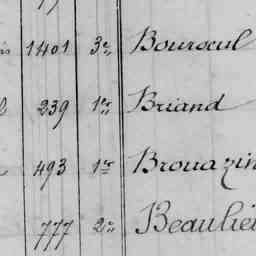 1401 3e Bourseul
239 1er Briand
493 1er Brouazin
777 2e Beaulieu